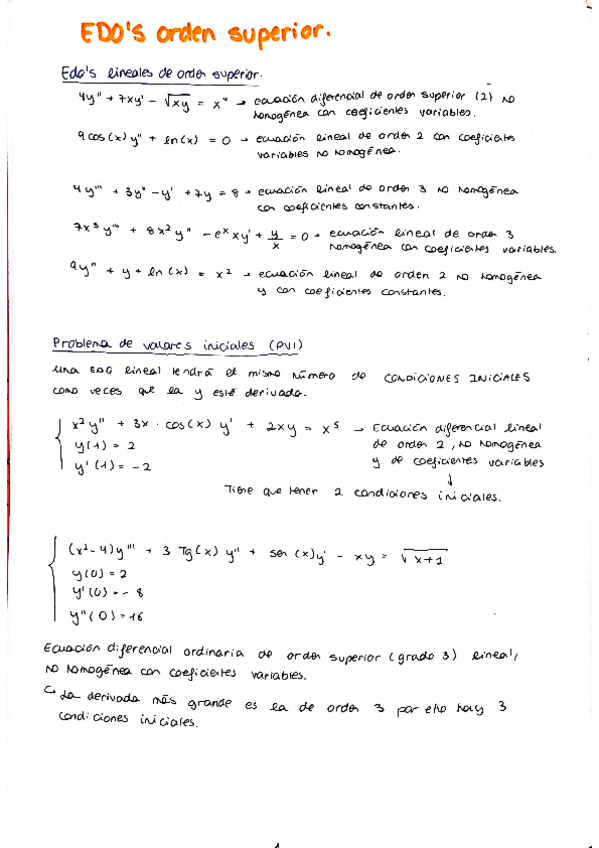 EDO's orden superior.
Edo's lineales de orden superior.
4y'' + 7xy' - √xy = x⁴ → ecuación diferencial de orden superior (2) no
homogénea con coeficientes variables.
9 cos(x) y'' + ln(x) = 0 → ecuación lineal de orden 2 con coeficientes
variables no homogénea.
4y''' + 3y'' - y' + 7y = 8 → ecuación lineal de orden 3 no homogénea
con coeficientes constantes.
7x³y''' + 8x²y'' - eˣxy' + y/x = 0 → ecuación lineal de orden 3
homogénea con coeficientes variables.
9y'' + y + ln(x) = x² → ecuación lineal de orden 2 no homogénea
y con coeficientes constantes.
Problema de valores iniciales (PVI)
una EDO lineal tendrá el mismo número de CONDICIONES INICIALES
como veces que la y esté derivada.
x²y'' + 3x · cos(x) y' + 2xy = x⁵ → Ecuación diferencial lineal
y(1) = 2 de orden 2, no homogénea
y'(1) = -2 y de coeficientes variables
↓
Tiene que tener 2 condiciones iniciales.
(x²-4)y''' + 3 Tg(x) y'' + sen(x)y' - xy = √x+1
y(0) = 2
y'(0) = -8
y''(0) = 16
Ecuación diferencial ordinaria de orden superior (grado 3) lineal,
no homogénea con coeficientes variables.
↳ La derivada más grande es la de orden 3 por ello hay 3
condiciones iniciales.